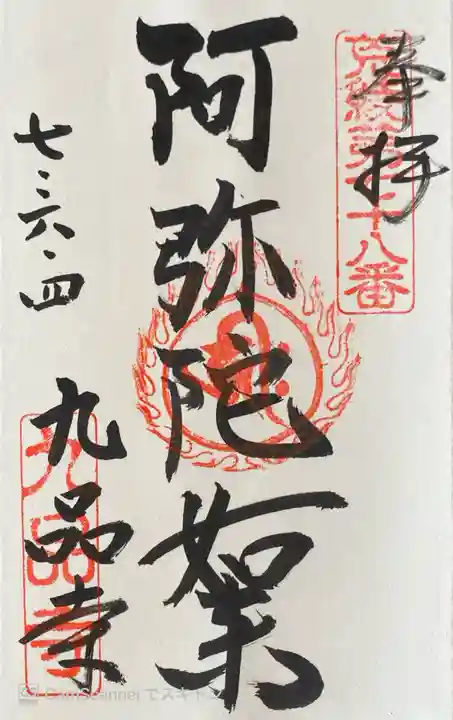 奉拝
十八番
阿弥陀如来
七・六・四
九品寺
九品寺
CamScanner でスキャ